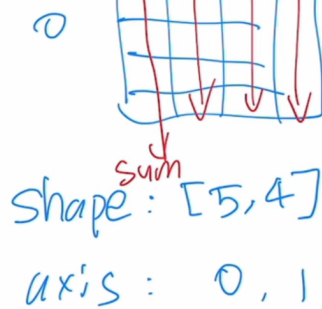 0
sum
shape: [5,4]
axis: 0, 1